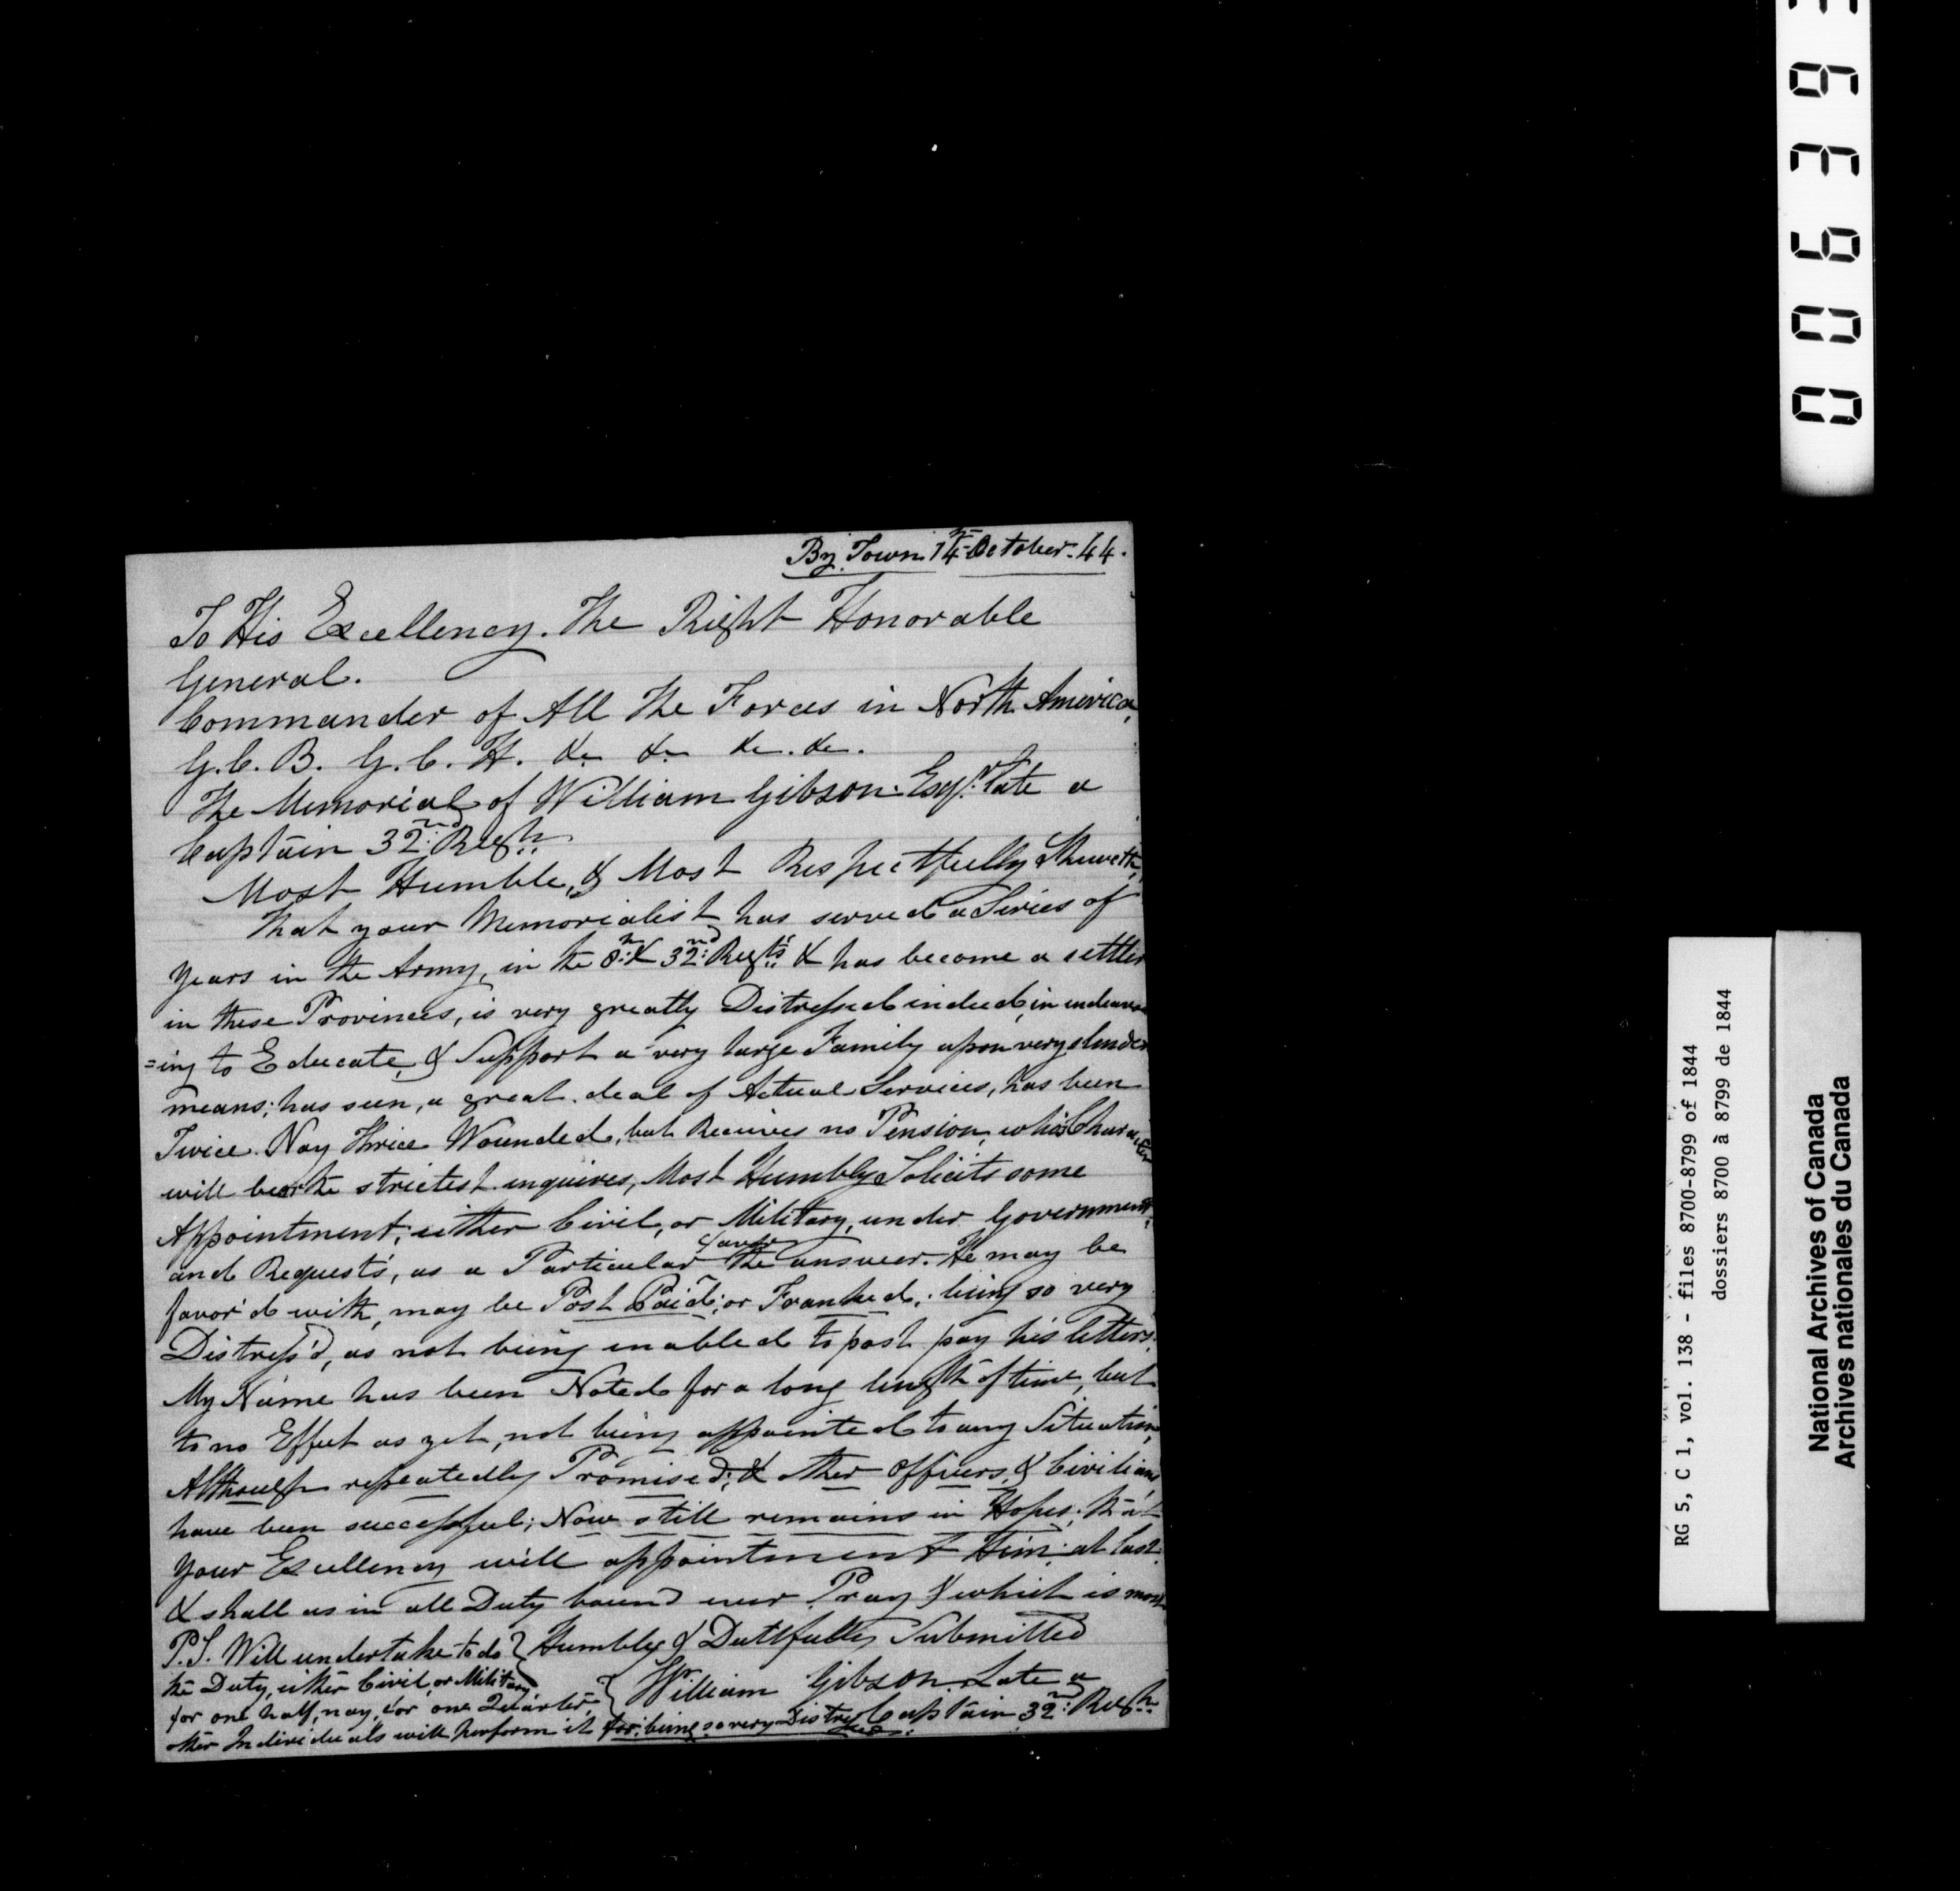 By Town 14th October. 44.
To His Excellency. The Right Honorable
General.
Commander of All The Forces in North America,
G.C.B. G.C.H. &c &c &c. &c.
The Memorial of William Gibson. Esqr. late a
Captain 32nd: Regt..
Most Humble, & Most Respectfully Sheweth,
That your Memorialist has served a Series of
years in the Army, in the 8th: & 32nd: Regts.. & has become a settler
in these Provinces, is very greatly Distressed indeed, in endeavor
=ing to Educate, & Support a very large Family upon very slender
means; has seen, a great deal of Actual Services, has been
Twice. Nay Thrice Wounded, but Receives no Pension, whos Character
will bear the strictest inquires, Most Humbly Solicits some
Appointment; either Civil, or Military, under Government,
and Requests, as a Particular favor the answer. He may be
favor'd with, may be Post Paid; or Franked,: being so very
Distress'd, as not being enabled to post pay his letters.
My Name has been Noted for a long length of time, but
to no Effect as yet, not being appointed to any Situation,
Although repeatedly Promised; & other Officers, & Civilians,
have been successful; Now still remains in Hopes, that
your Excellency will appointment Him; at last.
& shall as in all Duty bound ever Pray & which is most
Humbly & Dutifully Submitted
William Gibson. Late a
Captain 32nd: Regt..
P.S. Will undertake to do
the Duty, either Civil, or Military,
for one half, nay, for one Quarter,
other Individuals will perform it for: being so very Distressed.
006393
RG 5, C 1, vol. 138 - files 8700-8799 of 1844
dossiers 8700 à 8799 de 1844
National Archives of Canada
Archives nationales du Canada